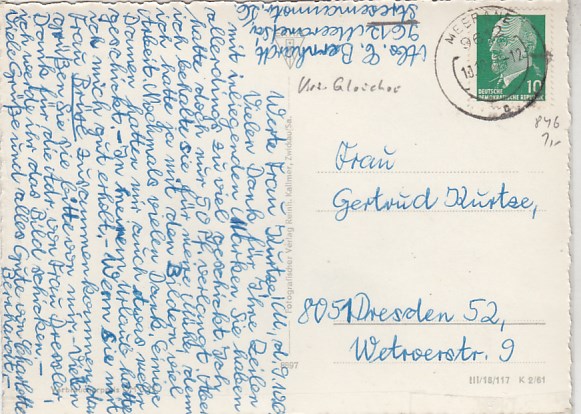 Abs. C. Bernhardt
9612 Meerane/Sa
Werte Frau Kurtze,
Vielen Dank für Ihre Zeilen
mit inliegenden Marken. Sie haben
allerdings zu viel geschickt. Ich
hatte doch nur 50 Pf verlangt. Aber
ich behalte sie für meine Mühe, denn
ich hatte ja mit den Bildern viel
Arbeit. Nochmals vielen Dank. Einige
Damen hatten mir auch etwas mehr
geschickt. In meinem Urlaub hatte
ich mich gut erholt. Wenn Sie mit
Frau zusammen kommen, dann
grüßen Sie bitte von mir. Vielen
Dank für die von Frau
ich will ihr das Bild schicken.
Viele Grüße und alles Gute von Charlotte
Bernhardt.
MEERANE
DEUTSCHE
DEMOKRATISCHE REPUBLIK
10
846
1,-
Frau
Gertrud Kurtze,
8051 Dresden 52,
Wetroerstr. 9
III/18/117 K 2/61
Fotografischer Verlag